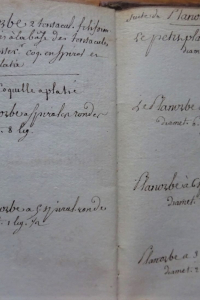 rbe, 2 tentacul. filiform
à la base des tentacules,
coq. en spirale et
Coquille aplatie
orbe a spirales rondes
8 lig.
orbe a 5 spirales rondes
1 lig. ½
suite du Planorbe
Le petit pla
diamet.
Le Planorbe a
diamet. 6
Planorbe a 6
diamet.
Planorbe a 3
diamet. 2